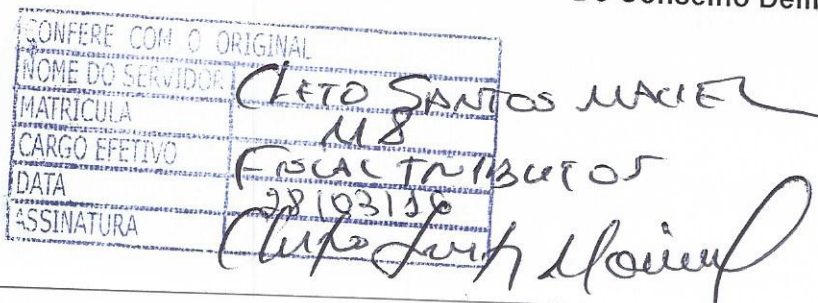 Do Conselho Delib
CONFERE COM O ORIGINAL
NOME DO SERVIDOR CLETO SANTOS MACIEL
MATRICULA 118
CARGO EFETIVO FISCAL TRIBUTOS
DATA 28/03/16
ASSINATURA